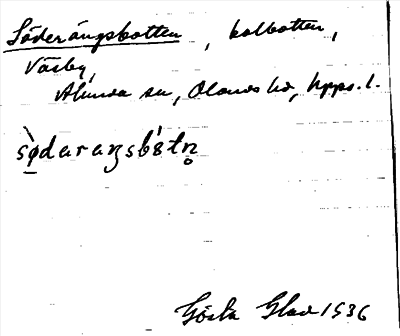 Söderängsbotten, kolbotten,
Väsby,
Alunda sn, Olands hd, Upps. l.
sø̀daraŋsbɞ́tn̥
Gösta Glad 1936